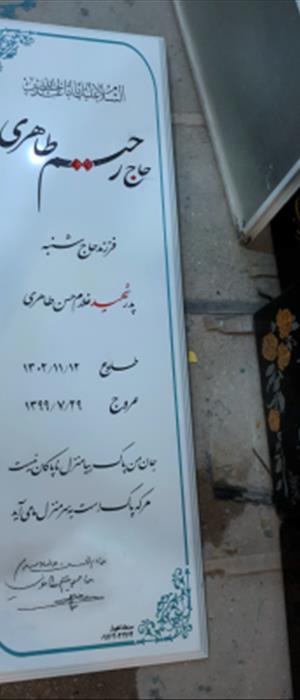 السلام علیک یا اباعبدالله
حاج رحیم طاهری
فرزند حاج شنبه
پدر شهید غلامحسن طاهری
طلوع ۱۳۰۲/۱۱/۱۲
عروج ۱۳۹۹/۷/۲۹
جان من پاک بیا منزل ناپاکان نیست
هر که پاک است به سر منزل ما می آید